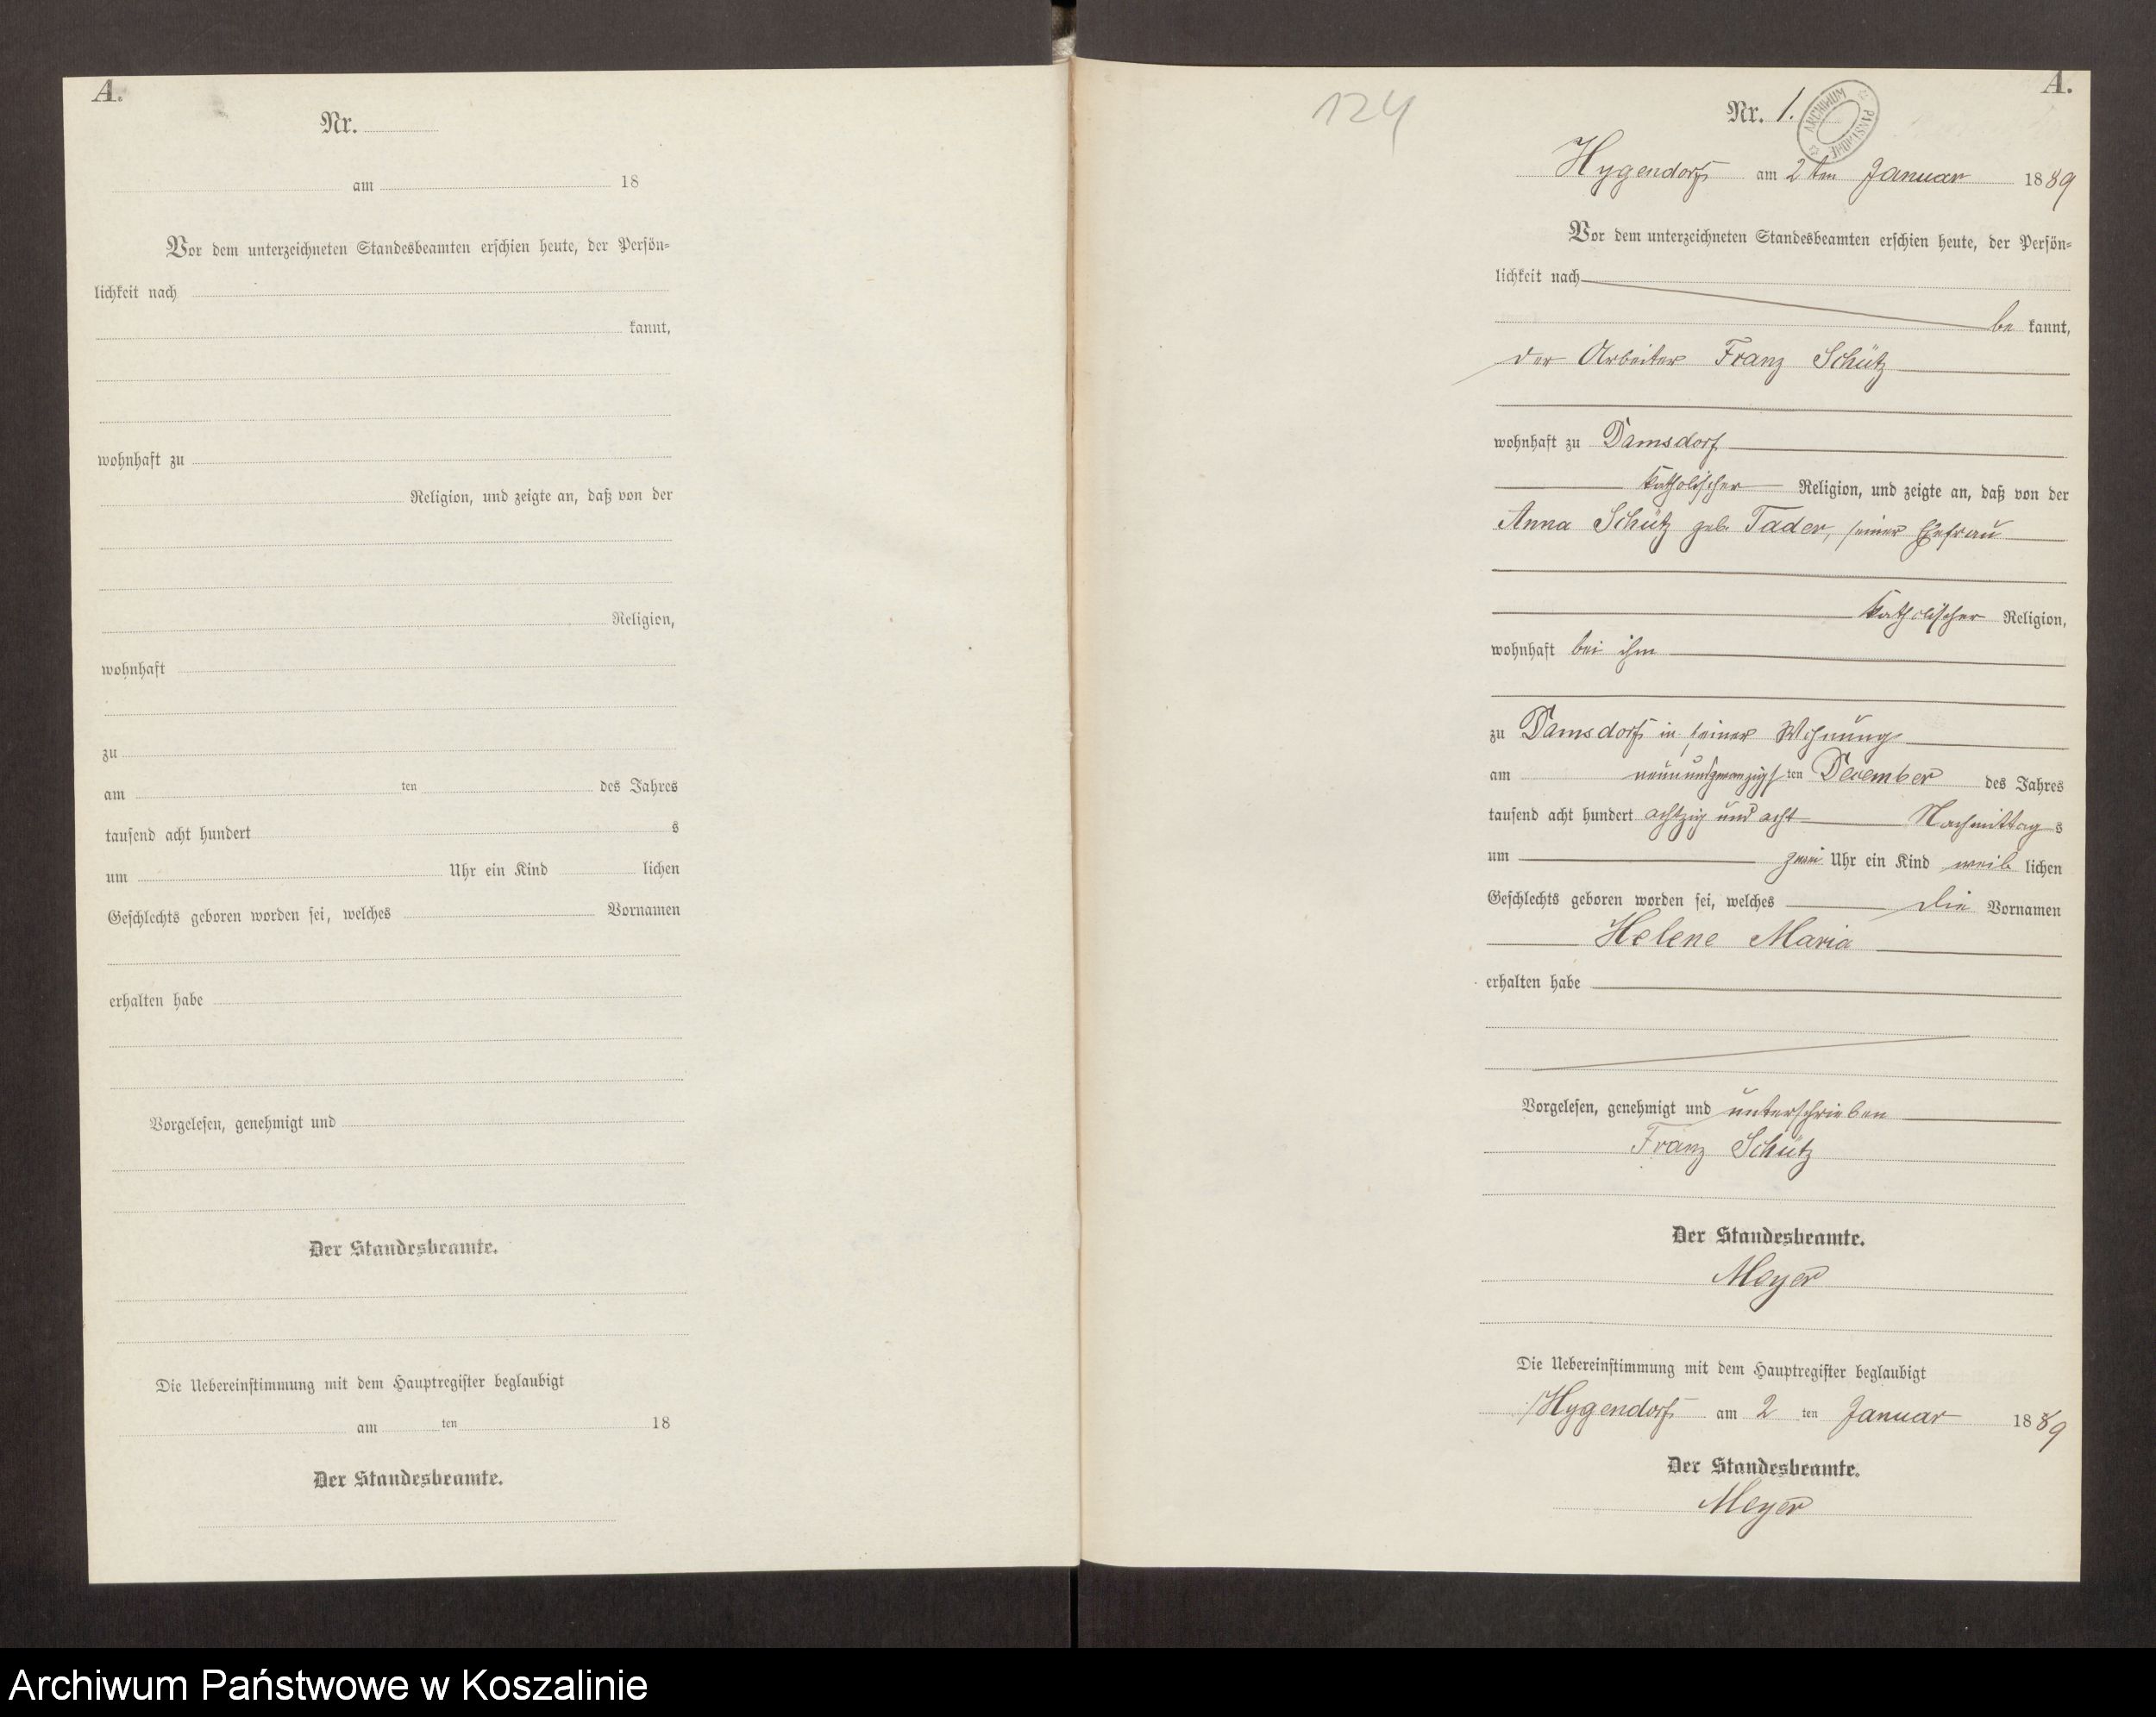 A.
Nr.
am 18
Vor dem unterzeichneten Standesbeamten erschien heute, der Persön=
lichkeit nach
kannt,
wohnhaft zu
Religion, und zeigte an, daß von der
Religion,
wohnhaft
zu
am ten des Jahres
tausend acht hundert s
um Uhr ein Kind lichen
Geschlechts geboren worden sei, welches Vornamen
erhalten habe
Vorgelesen, genehmigt und
Der Standesbeamte.
Die Uebereinstimmung mit dem Hauptregister beglaubigt
am ten 18
Der Standesbeamte.
124
A.
Nr. 1.
ARCHIWUM PAŃSTWOWE
Hygendorf am 2ten Januar 1889
Vor dem unterzeichneten Standesbeamten erschien heute, der Persön=
lichkeit nach
be kannt,
der Arbeiter Franz Schütz
wohnhaft zu Damsdorf
katholischer Religion, und zeigte an, daß von der
Anna Schütz geb. Tader, seiner Ehefrau
katholischer Religion,
wohnhaft bei ihm
zu Damsdorf in seiner Wohnung
am neunundzwanzigsten December des Jahres
tausend acht hundert achtzig und acht Nachmittags
um zwei Uhr ein Kind weiblichen
Geschlechts geboren worden sei, welches die Vornamen
Helene Maria
erhalten habe
Vorgelesen, genehmigt und unterschrieben
Franz Schütz
Der Standesbeamte.
Meyer
Die Uebereinstimmung mit dem Hauptregister beglaubigt
Hygendorf am 2 ten Januar 1889
Der Standesbeamte.
Meyer
Archiwum Państwowe w Koszalinie